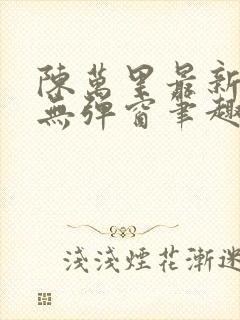 陳萬里最新
無彈窗筆趣
淺淺煙花漸迷